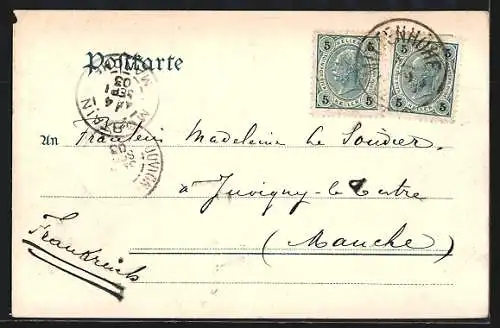 Postkarte
5 HELLER 5
5 HELLER 5
SEPT
03
MORTAIN
JUVIGNY
An Fräulein Madeleine Le Soudier
à Juvigny-le-Tertre
(Manche)
Frankreich